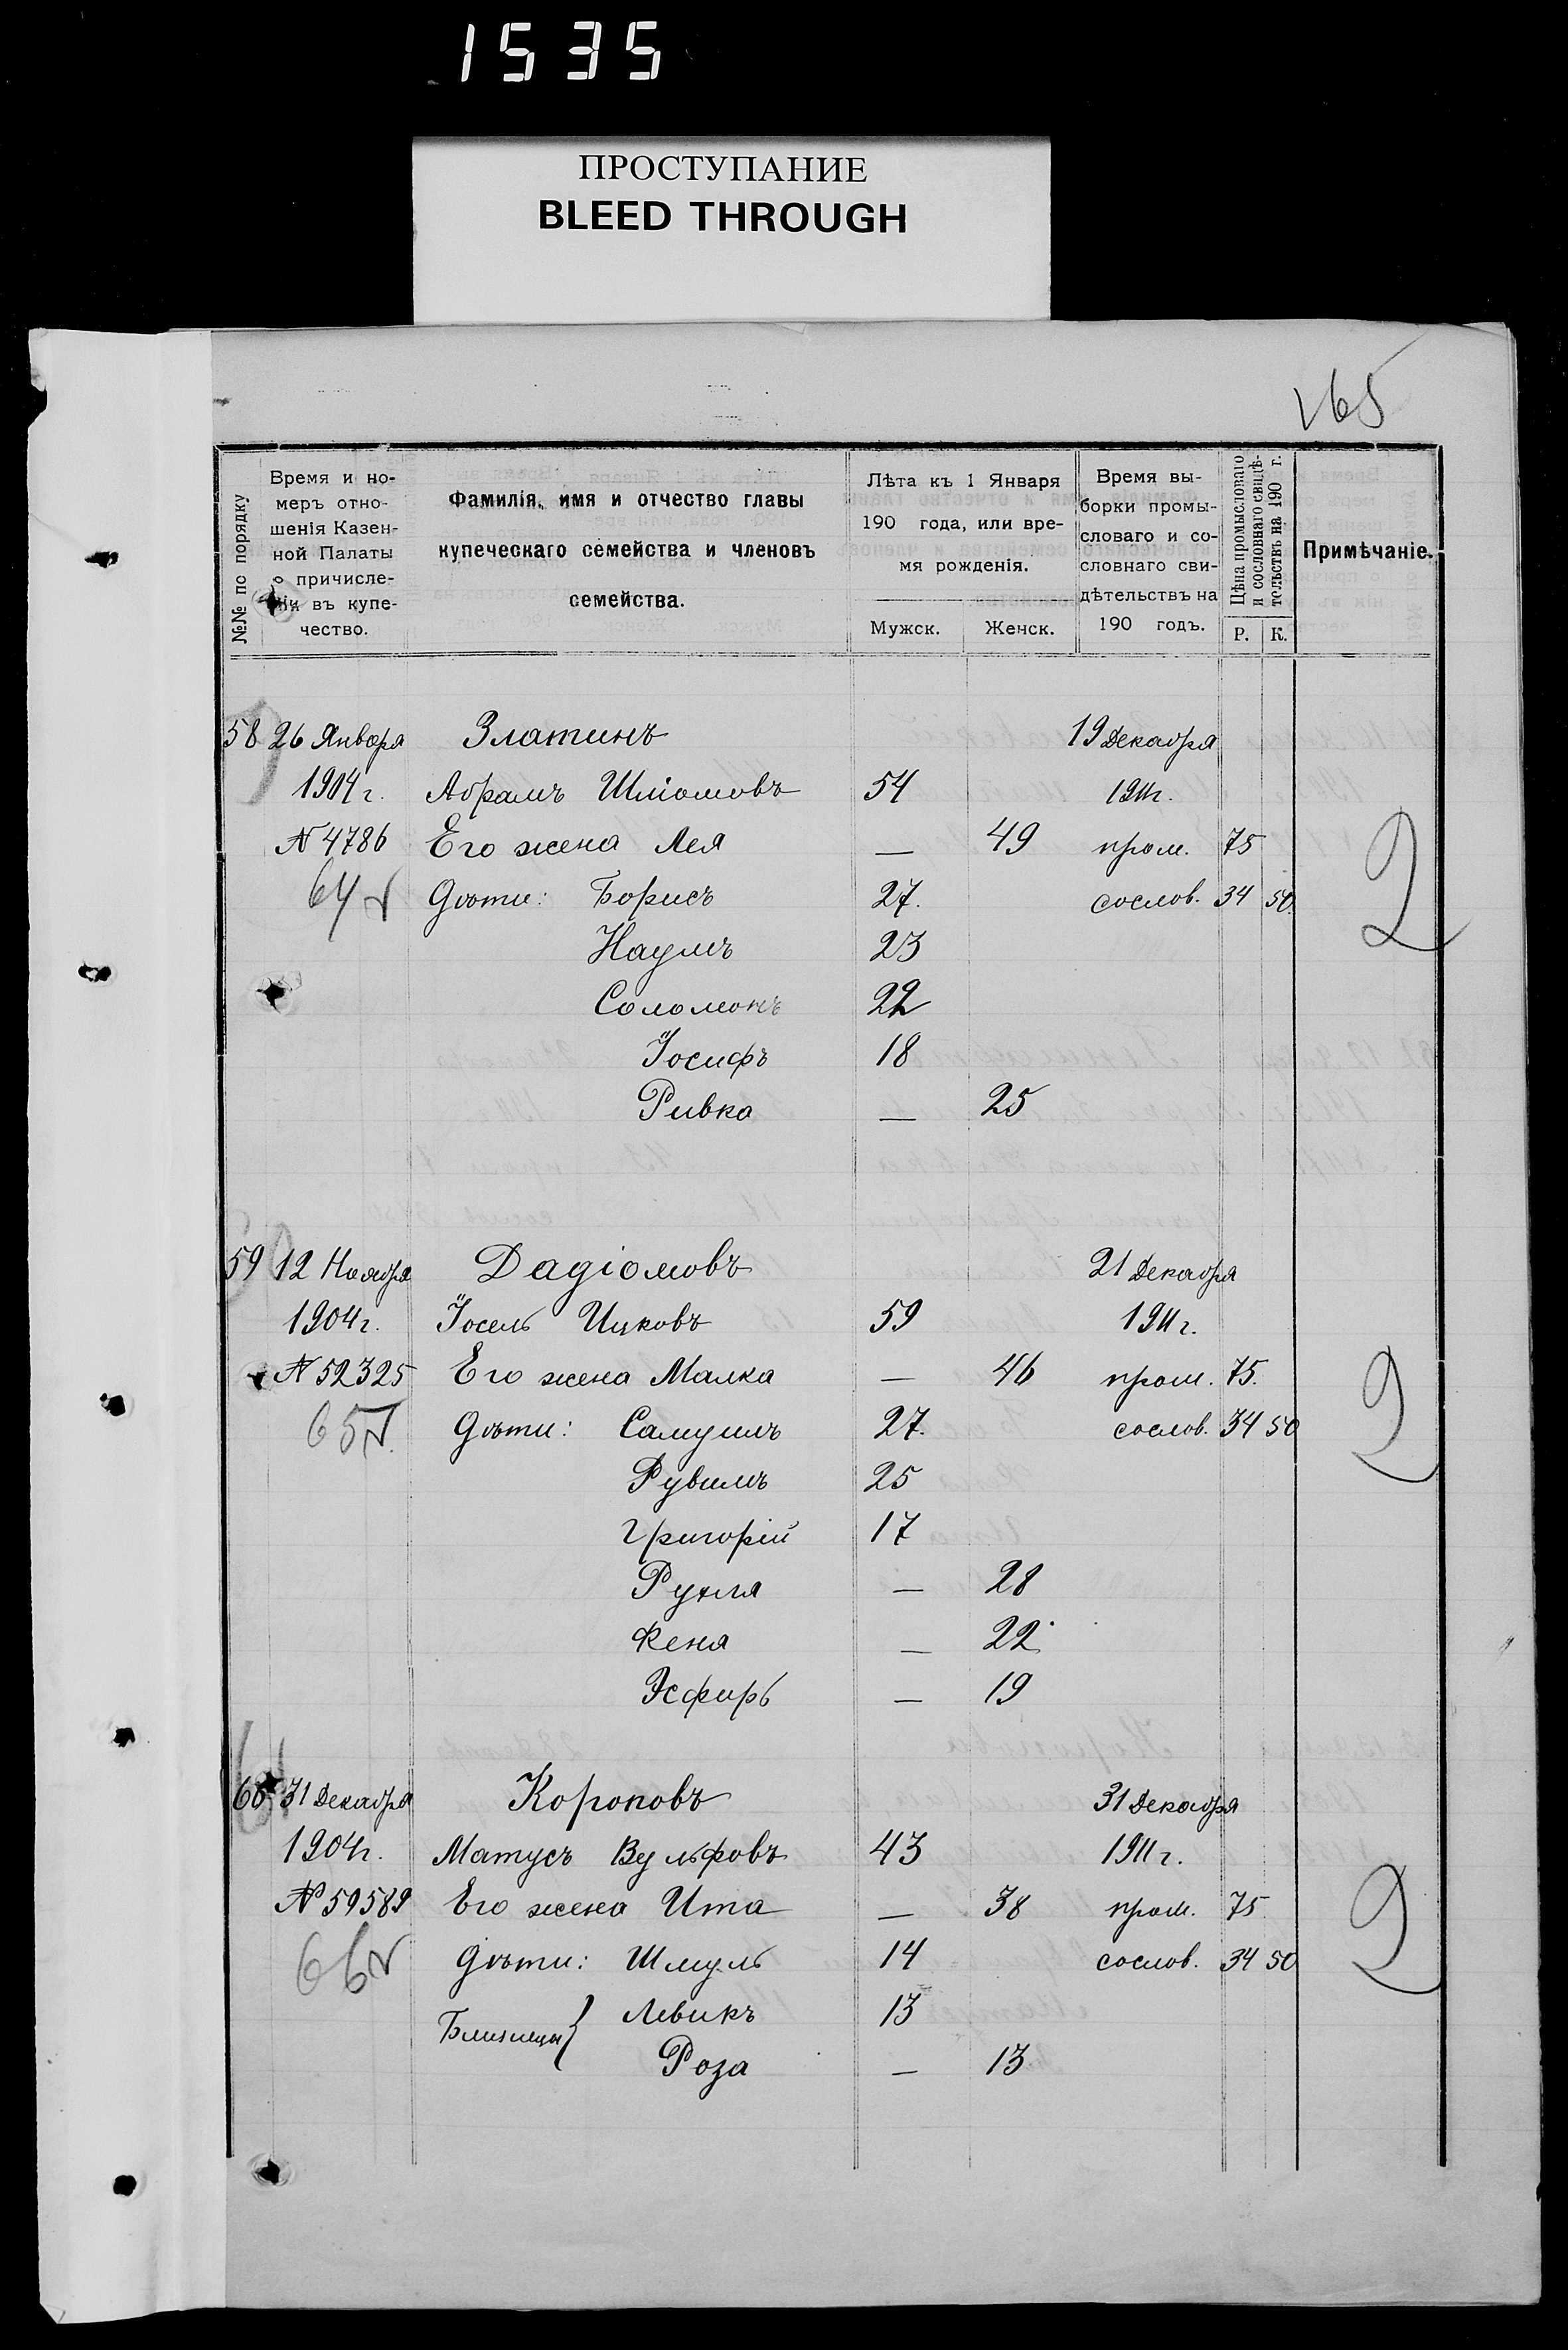 1535
ПРОСТУПАНИЕ
BLEED THROUGH
165
№№ по порядку
Время и номеръ отношенія Казенной Палаты о причисленіи въ купечество.
Фамилія, имя и отчество главы купеческаго семейства и членовъ семейства.
Лѣта къ 1 Января 190 года, или время рожденія.
Мужск. Женск.
Время выборки промысловаго и сословнаго свидѣтельствъ на 190 годъ.
Цѣна промысловаго и сословнаго свидѣтельствъ на 190 г.
Р. К.
Примѣчаніе.
58 26 Января Златинъ 19 Декабря
1904 г. Абрамъ Шліомовъ 54 1911 г.
№ 4786 Его жена Лея — 49 пром. 75 2
64 Дѣти: Борисъ 27. сослов. 34 50
Наумъ 23
Соломонъ 22
Іосифъ 18
Ривка — 25
59 12 Ноября Дадіомовъ 21 Декабря
1904 г. Іосель Ицковъ 59 1911 г.
№ 52325 Его жена Малка — 46 пром. 75. 2
65 Дѣти: Самуилъ 27. сослов. 34 50
Рувимъ 25
Григорій 17
Рухля — 28
Феня — 22
Эсфирь — 19
60 31 Декабря Короповъ 31 Декабря
1904 г. Матусъ Вульфовъ 43 1911 г.
№ 59589 Его жена Ита — 38 пром. 75 2
66 Дѣти: Шмуль 14 сослов. 34 50
Близнецы } Левикъ 13
Роза — 13